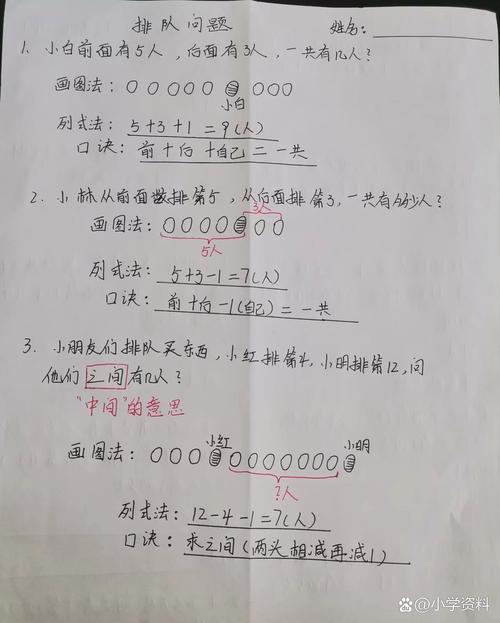 排队问题 姓名:
1. 小白前面有5人，后面有3人，一共有几人?
画图法: ○○○○○ ○○○
小白
列式法: 5+3+1=9(人)
口诀: 前+后+自己=一共
2. 小林从前面数排第5，从后面排第3，一共有多少人?
3人
画图法: ○○○○ ○○
5人
列式法: 5+3-1=7(人)
口诀: 前+后-1(自己)=一共
3. 小朋友们排队买东西，小红排第4，小明排第12，问
他们之间有几人?
"中间"的意思
小红 小明
画图法: ○○○ ○○○○○○○
?人
列式法: 12-4-1=7(人)
口诀: 求之间(两头相减再减1)
@小学资料